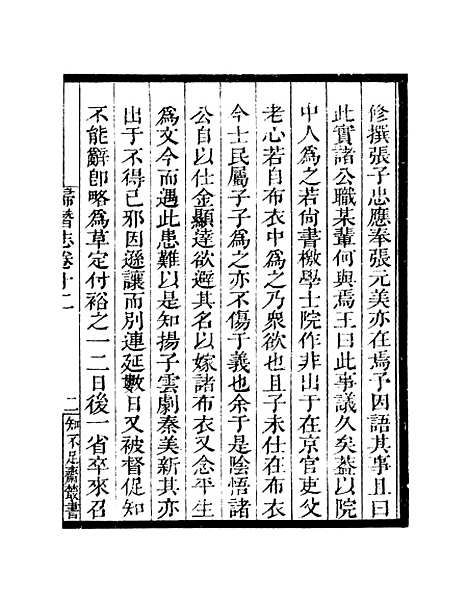 修撰張子忠應奉張元美亦在焉予因語其事且曰
此實諸公職某輩何與焉王曰此事議久矣葢以院
中人為之若尚書檄學士院作非出于在京官吏父
老心若自布衣中為之乃衆欲也且子未仕在布衣
今士民屬子子為之亦不傷于義也余于是陰悟諸
公自以仕金顯達欲避其名以嫁諸布衣又念平生
為文今而遇此患難以是知揚子雲劇秦美新其亦
出于不得已邪因遜讓而别連延數日又被督促知
不能辭卽略為草定付裕之一二日後一省卒來召
歸潛志卷十二
二
知不足齋叢書